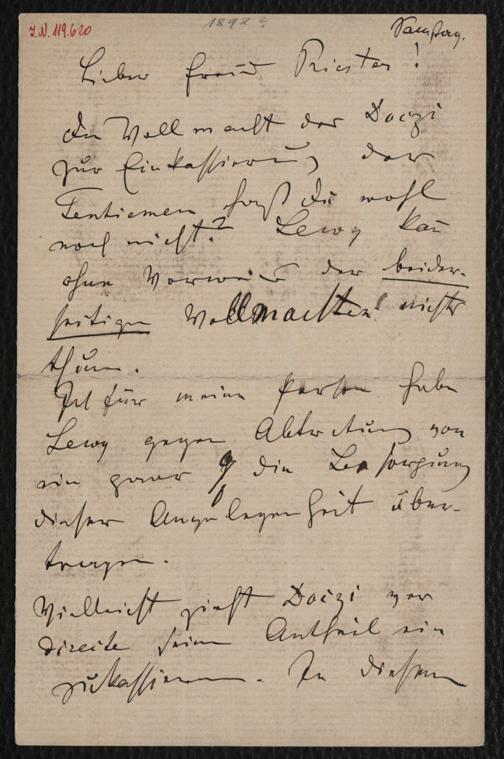 I.N. 119.620
1892?
Samstag.
Lieber Freund Priester!
Die Vollmacht der Doczi
zur Einkassierung der
Tantiemen hast du wohl
noch nicht? Lewy kann
ohne Vorweis der beider-
seitigen Vollmachten nichts
thun.
Ich für meine Person habe
Lewy gegen Abtretung von
ein paar % die Besorgung
dieser Angelegenheit über-
tragen.
Vielleicht zieht Doczi vor
directe seinen Antheil ein
zukassieren. In diesem